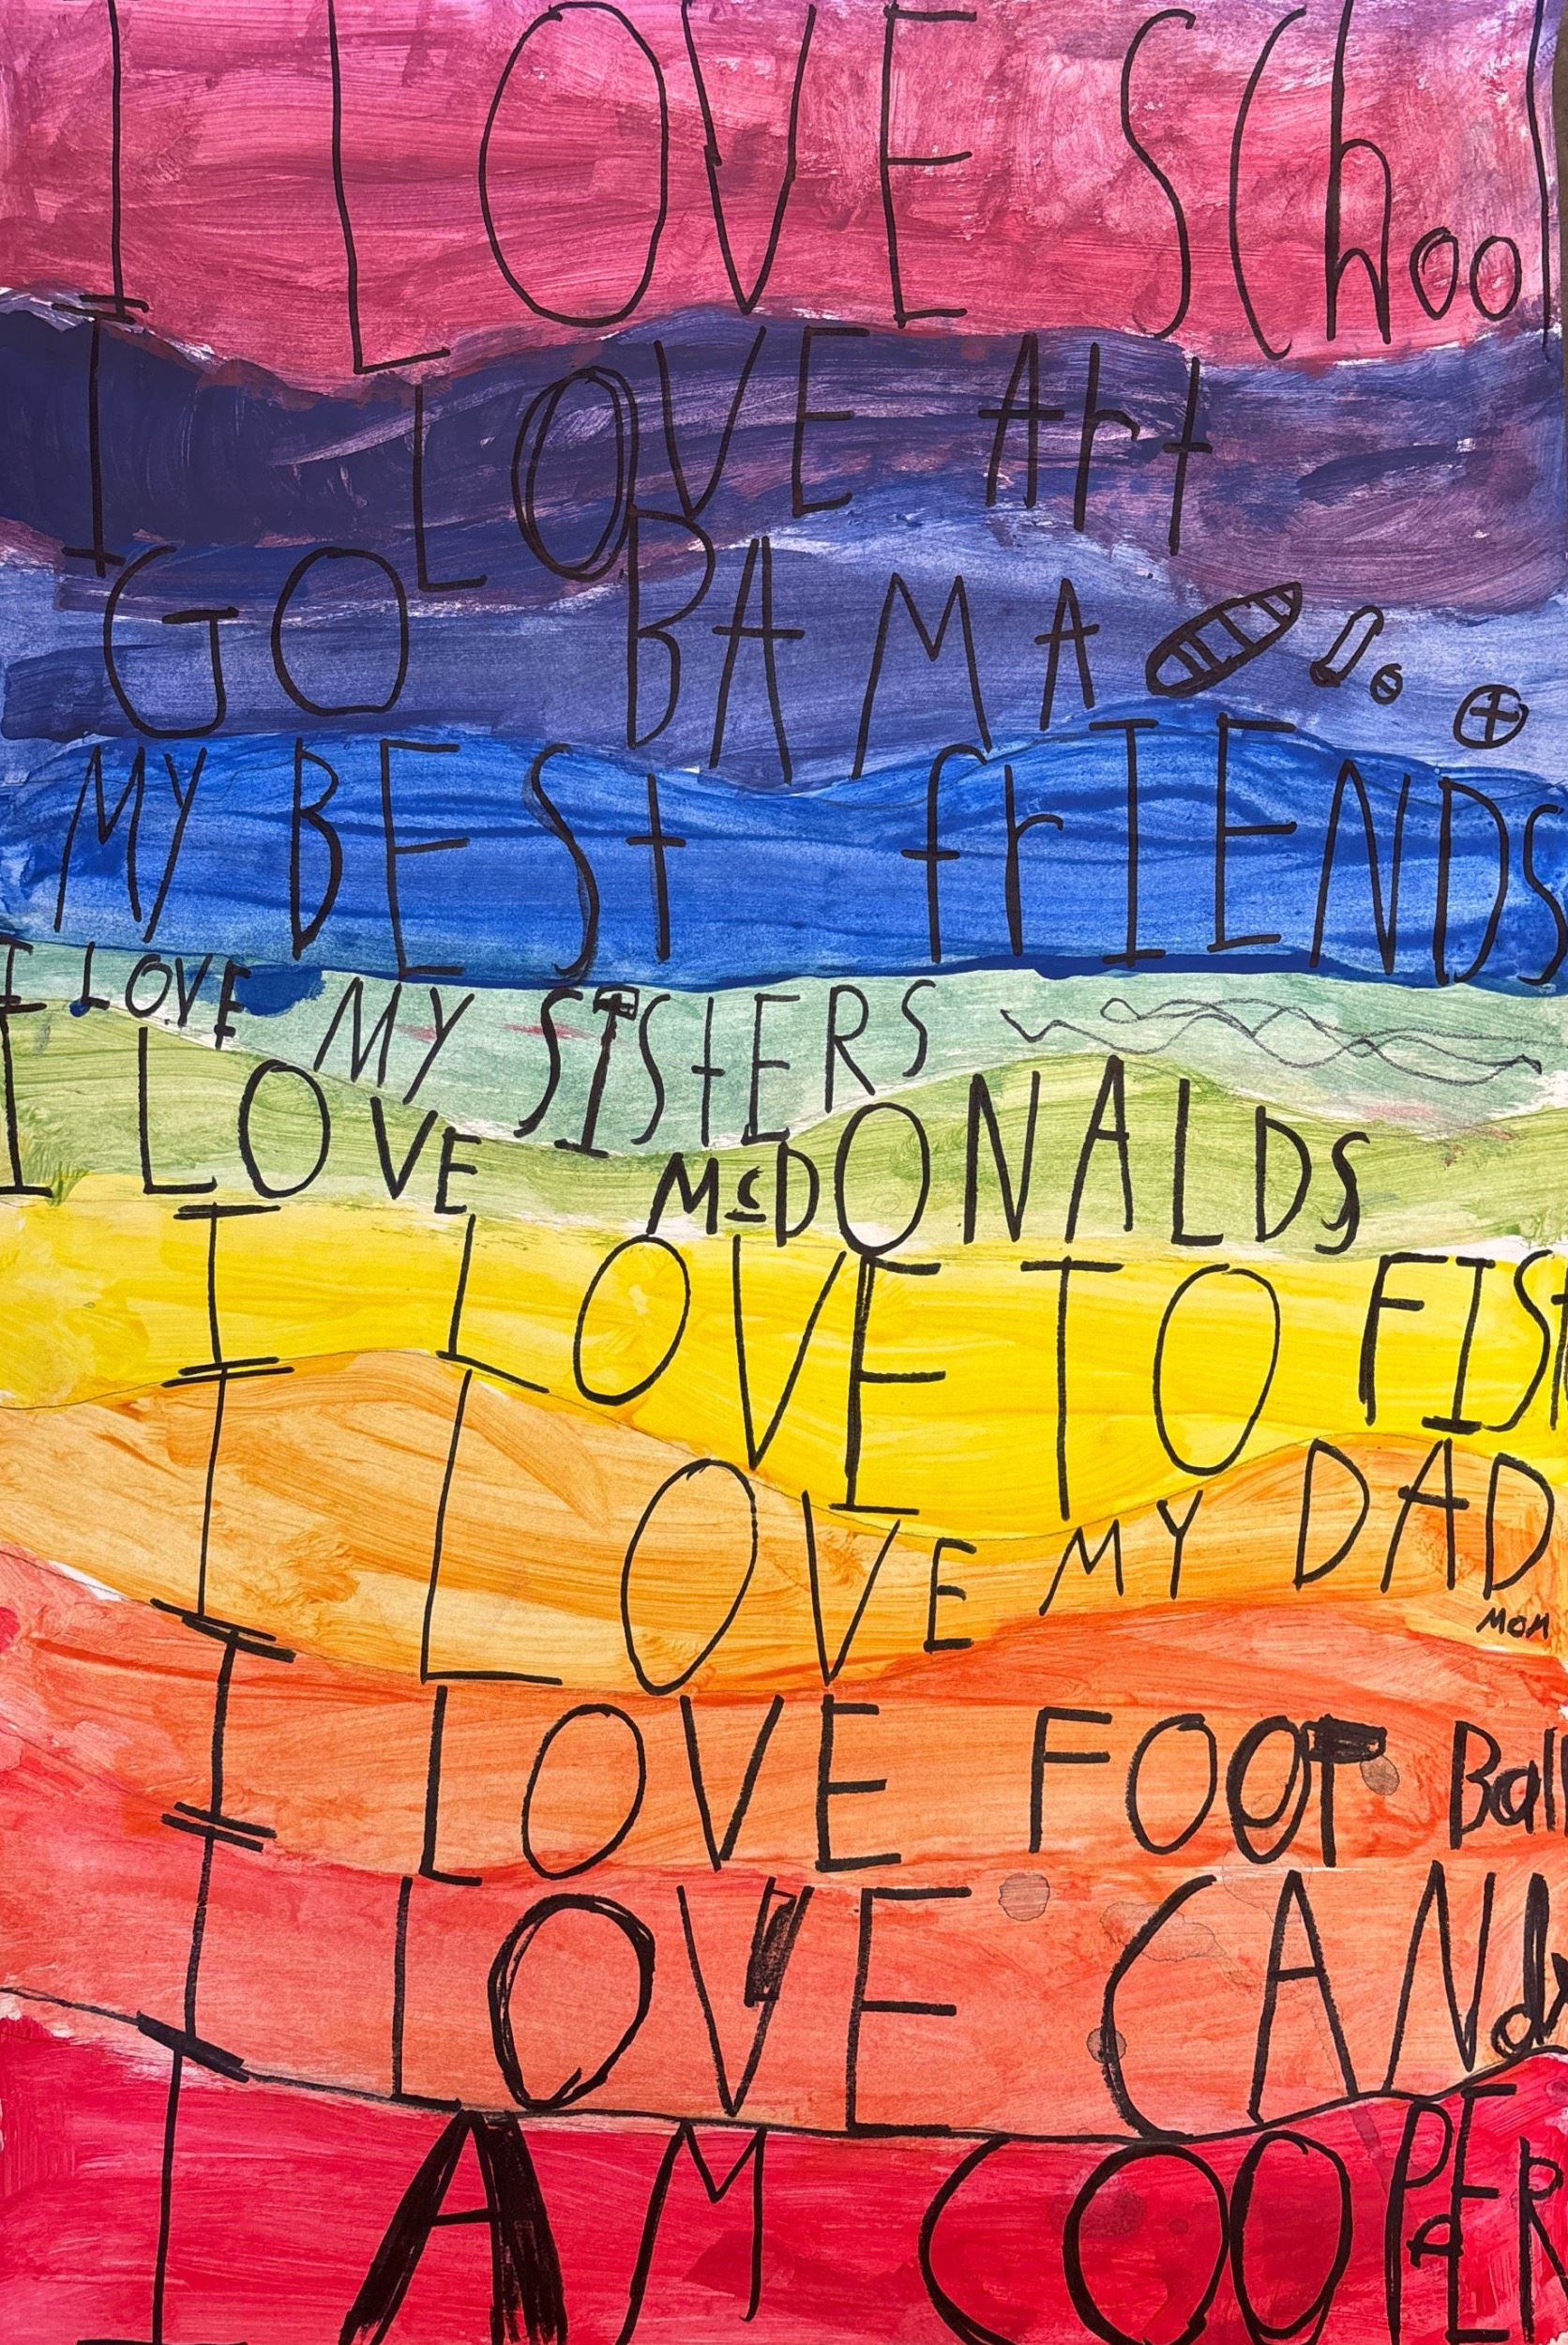 I LOVE SChool
I LOVE Art
GO BAMA
MY BESt frIENDS
I LOVE MY SIStERS
I LOVE McDONALDS
I LOVE TO FISH
I LOVE MY DAD
MOM
I LOVE FOOT Ball
I LOVE CANdy
I AM COOPER